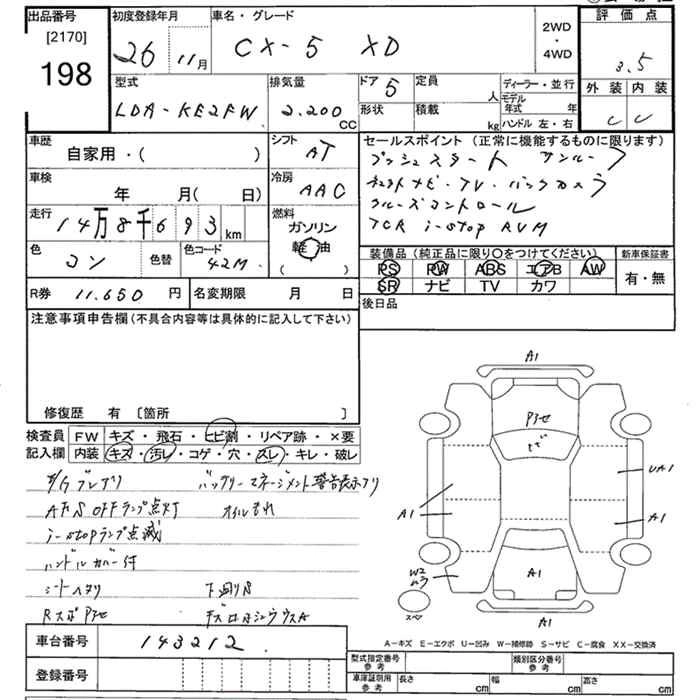 出品番号 初度登録年月 車名・グレード 評価点
[2170]
198
26 11月 CX-5 XD 2WD・4WD 3.5
型式 排気量 ドア 5 定員 人 ディーラー・並行 外装 内装
LDA-KE2FW 2.200 CC 形状 積載 kg モデル年式 年 C C
ハンドル 左・右
車歴 シフト セールスポイント (正常に機能するものに限ります)
自家用・( ) AT プッシュスタート サンルーフ
車検 年 月(日) 冷房 AAC ナビ・TV・バックカメラ
クルーズコントロール
走行 14万8千693km 燃料 ガソリン 軽油 ( ) i-stop
装備品 (純正品に限り○をつけてください) 新車保証書
色 コン 色替 色コード 42M PS PW ABS エアB AW 有・無
SR ナビ TV カワ
R券 11.650 円 名変期限 月 日 後日品
注意事項申告欄 (不具合内容等は具体的に記入して下さい)
修復歴 有 [箇所 ]
検査員 FW キズ・飛石・ヒビ割・リペア跡・×要
記入欄 内装 キズ・汚レ・コゲ・穴・スレ・キレ・破レ
バッテリーマネージメント警告表示アリ
AFS OFFランプ点灯 オイルもれ
i-stopランプ点滅
ハンドルカバー付
シートヘタリ 下廻りS
A1
ヒビ
A1 UA1
A1
W2
A1
スペア
A1
A-キズ E-エクボ U-凹み W-補修跡 S-サビ C-腐食 XX-交換済
車台番号 143212
登録番号
型式指定番号 参考 類別区分番号 参考
車庫証明用 参考 長さ cm 幅 cm 高さ cm